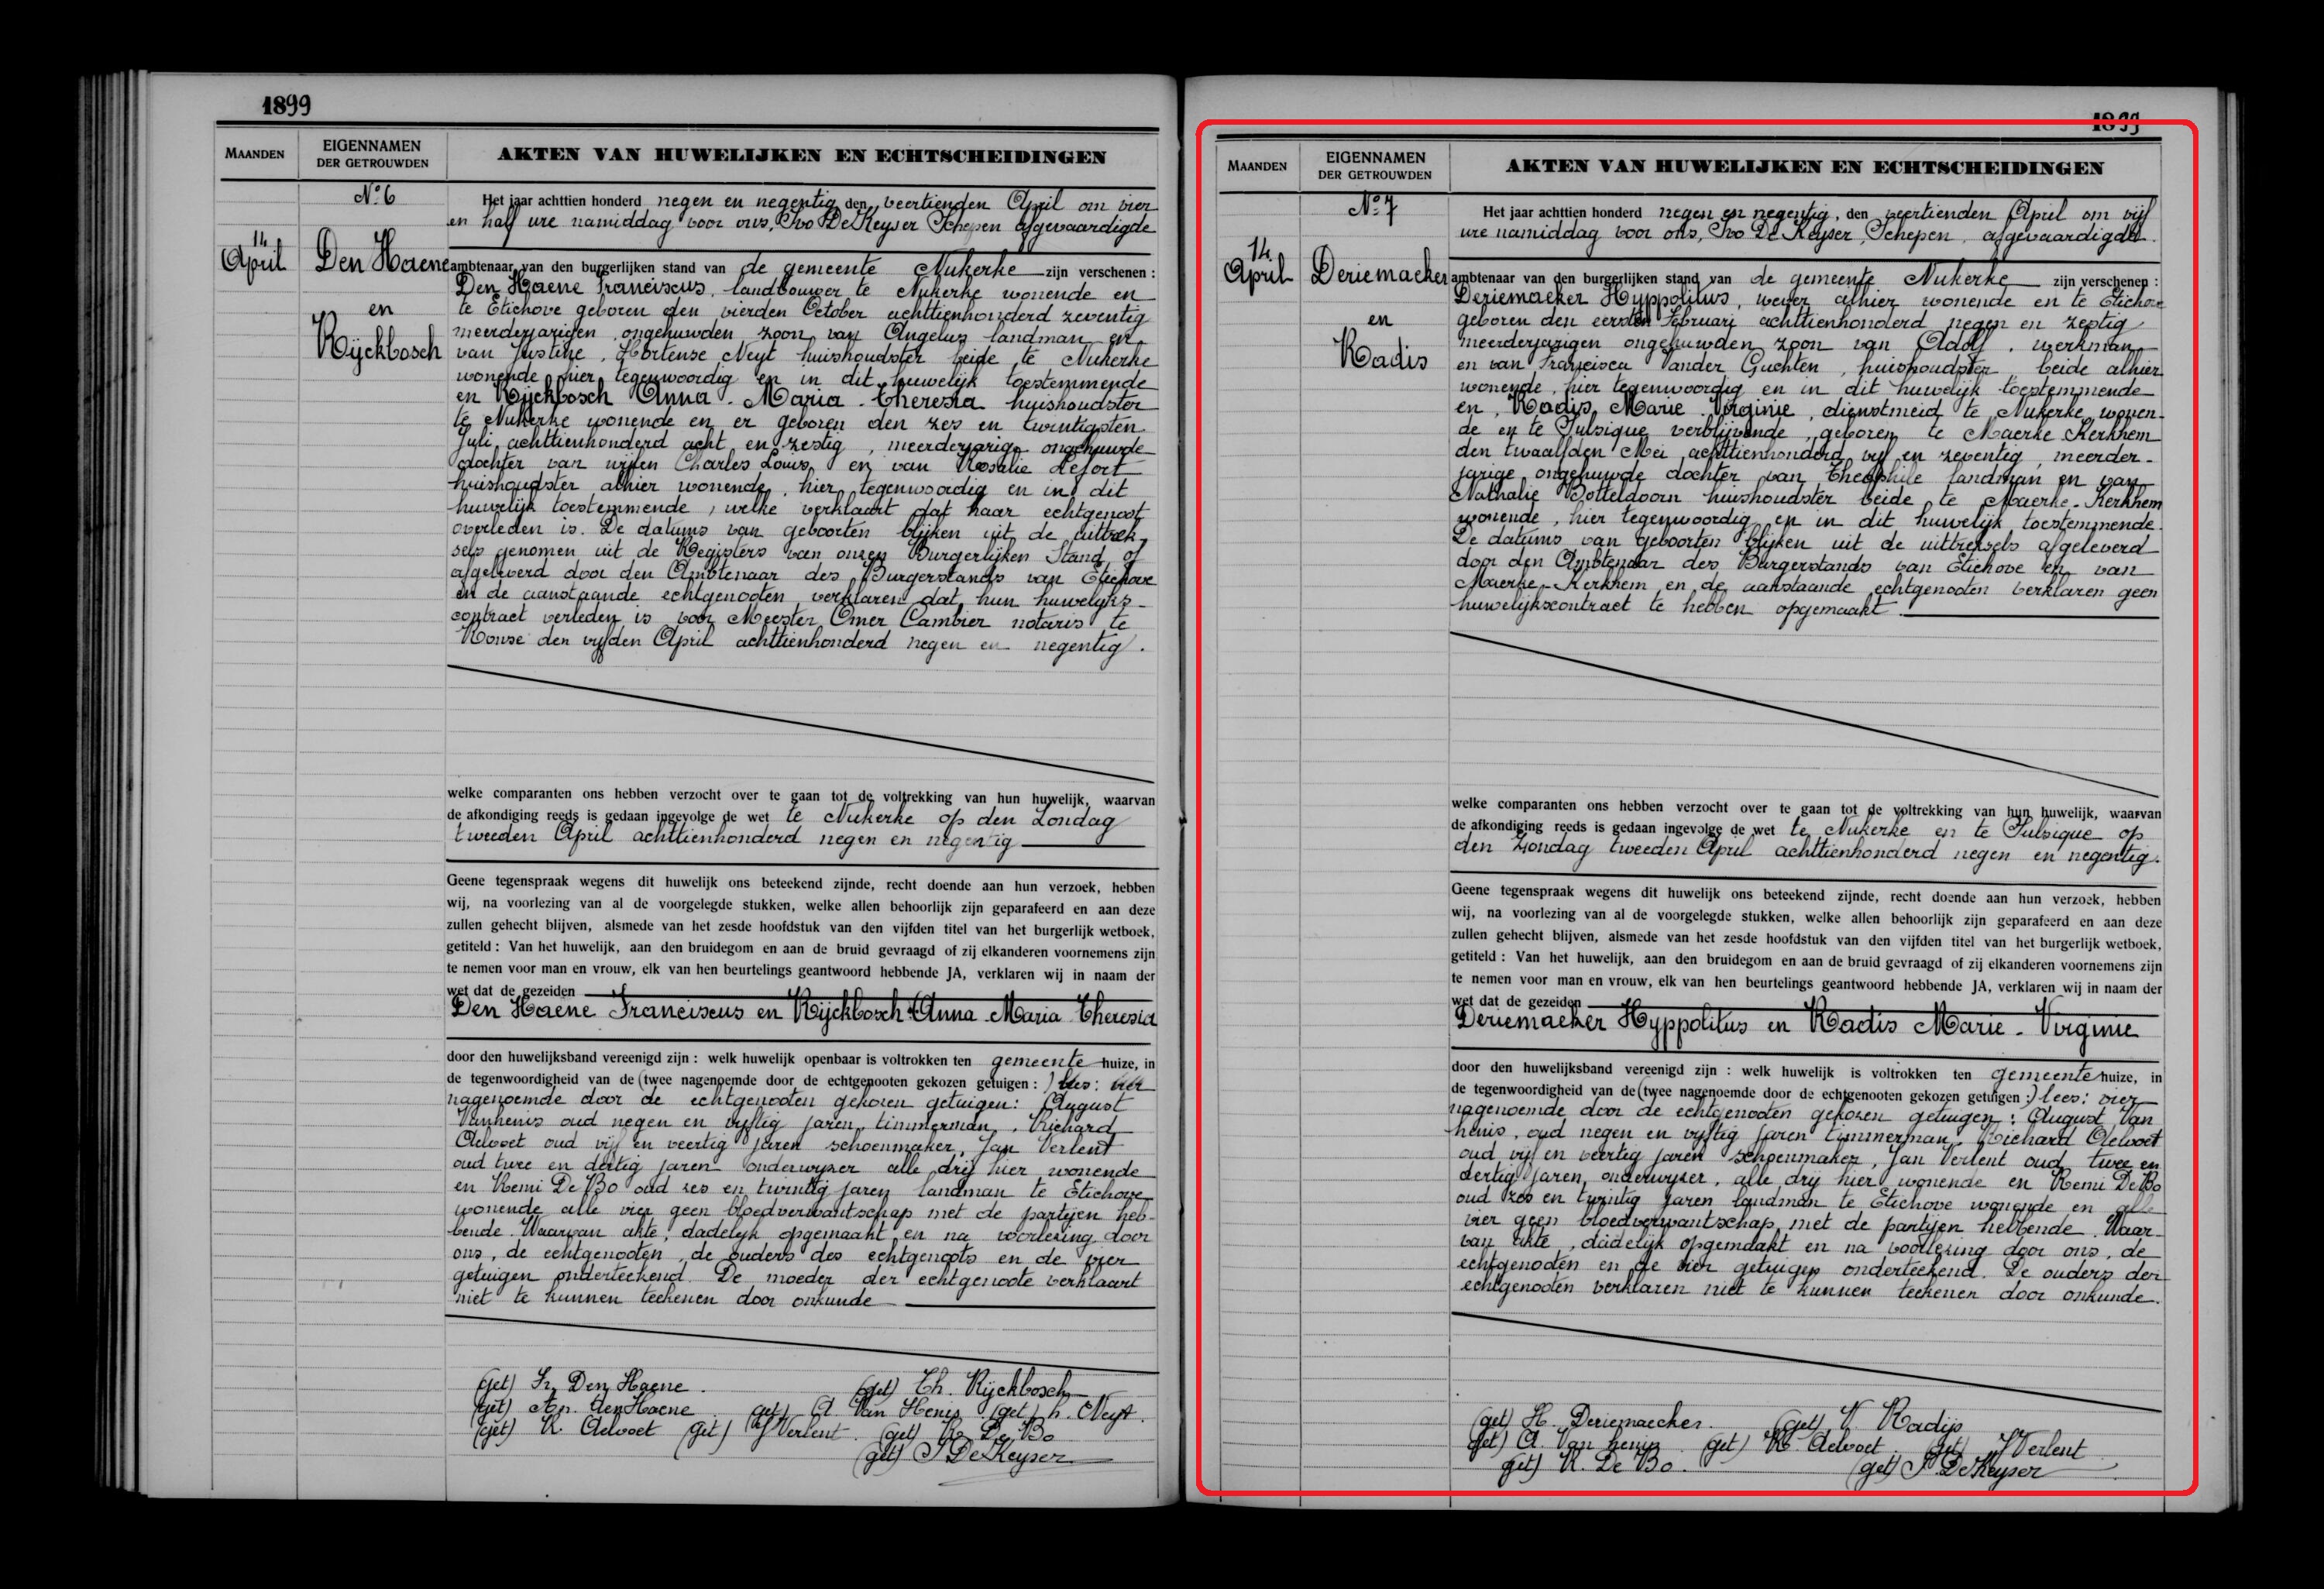 1899
MAANDEN
EIGENNAMEN
DER GETROUWDEN
AKTEN VAN HUWELIJKEN EN ECHTSCHEIDINGEN
No 6
14
April
Den Haene
en
Rijckbosch
Het jaar achttien honderd negen en negentig den veertienden April om vier
en half ure namiddag voor ons, Ivo De Keyser Schepen afgevaardigde
ambtenaar van den burgerlijken stand van de gemeente Nukerke zijn verschenen :
Den Haene Franciscus, landbouwer te Nukerke wonende en
te Etichove geboren den vierden October achttienhonderd zeventig
meerderjarigen ongehuwden zoon van Angelus landman en
van Justine, Hortense Neyt huishoudster beide te Nukerke
wonende hier tegenwoordig en in dit huwelijk toestemmende
en Rijckbosch Anna - Maria - Theresia huishoudster
te Nukerke wonende en er geboren den zes en twintigsten
Juli achttienhonderd acht en zestig, meerderjarige ongehuwde
dochter van wijlen Charles Louis, en van Rosalie Lefort
huishoudster alhier wonende, hier tegenwoordig en in dit
huwelijk toestemmende, welke verklaart dat haar echtgenoot
overleden is. De datums van geboorten blijken uit de uittrek-
sels genomen uit de Registers van onzen Burgerlijken Stand of
afgeleverd door den Ambtenaar des Burgerstands van Etichove
en de aanstaande echtgenoten verklaren dat hun huwelijks-
contract verleden is voor Meester Omer Cambier notaris te
Ronse den vijfden April achttienhonderd negen en negentig.
welke comparanten ons hebben verzocht over te gaan tot de voltrekking van hun huwelijk, waarvan
de afkondiging reeds is gedaan ingevolge de wet te Nukerke op den Zondag
tweeden April achttienhonderd negen en negentig
Geene tegenspraak wegens dit huwelijk ons beteekend zijnde, recht doende aan hun verzoek, hebben
wij, na voorlezing van al de voorgelegde stukken, welke allen behoorlijk zijn geparafeerd en aan deze
zullen gehecht blijven, alsmede van het zesde hoofdstuk van den vijfden titel van het burgerlijk wetboek,
getiteld : Van het huwelijk, aan den bruidegom en aan de bruid gevraagd of zij elkanderen voornemens zijn
te nemen voor man en vrouw, elk van hen beurtelings geantwoord hebbende JA, verklaren wij in naam der
wet dat de gezeiden
Den Haene Franciscus en Rijckbosch Anna - Maria - Theresia
door den huwelijksband vereenigd zijn : welk huwelijk openbaar is voltrokken ten gemeente huize, in
de tegenwoordigheid van de (twee nagenoemde door de echtgenooten gekozen getuigen :) lees: vier
nagenoemde door de echtgenooten gekozen getuigen: August
Vanhenis oud negen en vijftig jaren, timmerman, Richard
Aelvoet oud vijf en veertig jaren schoenmaker, Jan Verlent
oud twee en dertig jaren onderwijzer alle drij hier wonende
en Remi De Bo oud zes en twintig jaren landman te Etichove
wonende alle vier geen bloedverwantschap met de partijen heb-
bende. Waarvan akte, dadelijk opgemaakt en na voorlezing door
ons, de echtgenooten, de ouders des echtgenoots en de vier
getuigen onderteekend. De moeder der echtgenoote verklaart
niet te kunnen teekenen door onkunde
(get) Fr. Den Haene. (get) Th. Rijckbosch
(get) An. den Haene (get) A. Van Henis (get) h. Neyt.
(get) R. Aelvoet (get) J Verlent. (get) R. De Bo
(get) I De Keyser
1899
MAANDEN
EIGENNAMEN
DER GETROUWDEN
AKTEN VAN HUWELIJKEN EN ECHTSCHEIDINGEN
No 7
14
April
Deriemaeker
en
Radis
Het jaar achttien honderd negen en negentig, den veertienden April om vijf
ure namiddag voor ons, Ivo De Keyser, Schepen, afgevaardigde
ambtenaar van den burgerlijken stand van de gemeente Nukerke zijn verschenen :
Deriemaeker Hyppolitus, wever alhier wonende en te Etichove
geboren den eersten Februari achttienhonderd negen en zestig
meerderjarigen ongehuwden zoon van Adolf, werkman
en van Francisca Vander Guchten, huishoudster, beide alhier
wonende, hier tegenwoordig en in dit huwelijk toestemmende
en, Radis Marie Virginie, dienstmeid te Nukerke wonen-
de en te Sulsique verblijvende, geboren te Maerke Kerkhem
den twaalfden Mei achttienhonderd vijf en zeventig, meerder-
jarige ongehuwde dochter van Theophile landman en van
Nathalie Botteldoorn huishoudster beide te Maerke-Kerkhem
wonende, hier tegenwoordig en in dit huwelijk toestemmende.
De datums van geboorten blijken uit de uittreksels afgeleverd
door den Ambtenaar des Burgerstands van Etichove en van
Maerke-Kerkhem en de aanstaande echtgenooten verklaren geen
huwelijkscontract te hebben opgemaakt
welke comparanten ons hebben verzocht over te gaan tot de voltrekking van hun huwelijk, waarvan
de afkondiging reeds is gedaan ingevolge de wet te Nukerke en te Sulsique op
den Zondag tweeden April achttienhonderd negen en negentig.
Geene tegenspraak wegens dit huwelijk ons beteekend zijnde, recht doende aan hun verzoek, hebben
wij, na voorlezing van al de voorgelegde stukken, welke allen behoorlijk zijn geparafeerd en aan deze
zullen gehecht blijven, alsmede van het zesde hoofdstuk van den vijfden titel van het burgerlijk wetboek,
getiteld : Van het huwelijk, aan den bruidegom en aan de bruid gevraagd of zij elkanderen voornemens zijn
te nemen voor man en vrouw, elk van hen beurtelings geantwoord hebbende JA, verklaren wij in naam der
wet dat de gezeiden
Deriemaeker Hyppolitus en Radis Marie - Virginie
door den huwelijksband vereenigd zijn : welk huwelijk is voltrokken ten gemeente huize, in
de tegenwoordigheid van de (twee nagenoemde door de echtgenooten gekozen getuigen :) lees: vier
nagenoemde door de echtgenooten gekozen getuigen: August Van
henis, oud negen en vijftig jaren timmerman, Richard Aelvoet
oud vijf en veertig jaren schoenmaker, Jan Verlent oud twee en
dertig jaren, onderwijzer, alle drij hier wonende en Remi De Bo
oud zes en twintig jaren landman te Etichove wonende en alle
vier geen bloedverwantschap met de partijen hebbende. Waar-
van akte, dadelijk opgemaakt en na voorlezing door ons, de
echtgenoten en de vier getuigen onderteekend. De ouders der
echtgenoten verklaren niet te kunnen teekenen door onkunde.
(get) H. Deriemaecker. (get) V. Radijs
(get) A. Van henis. (get) R. Aelvoet. (get) J Verlent
(get) R. De Bo. (get) I. De Keyser